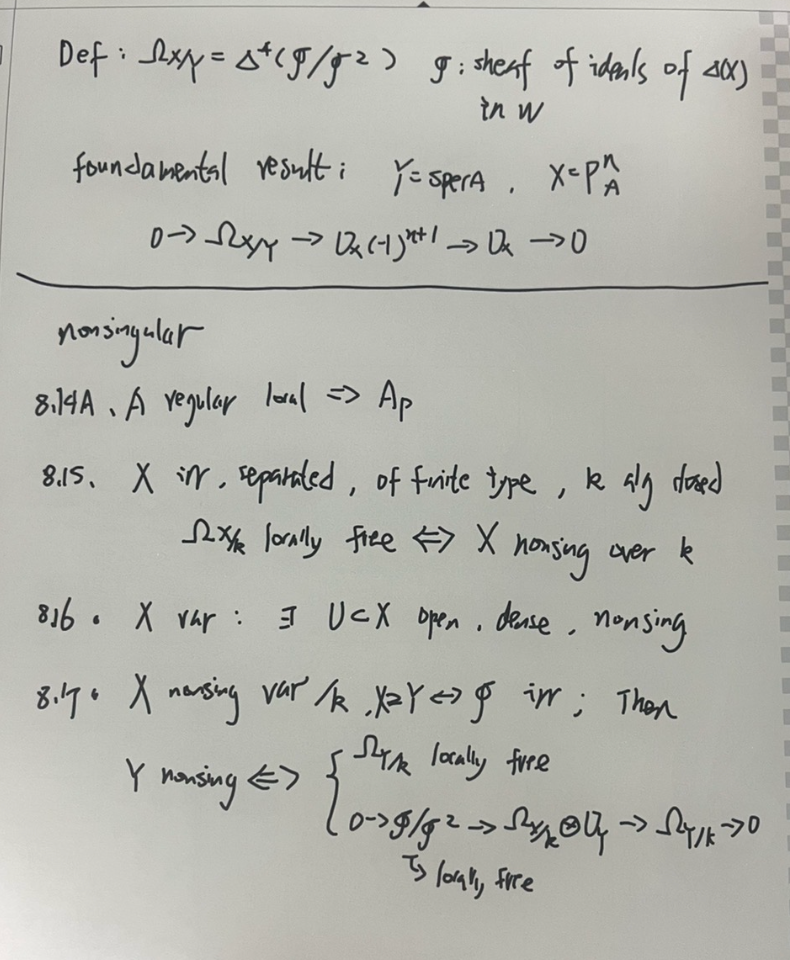 Def : Ω_{X/Y} = Δ*(𝓘/𝓘²) 𝓘 : sheaf of ideals of Δ(X)
in W
foundamental result : Y = spec A , X = P^n_A
0 → Ω_{X/Y} → O_X(-1)^{n+1} → O_X → 0
nonsingular
8.14A、A regular local ⇒ A_P
8.15、 X irr, separated, of finite type, k alg closed
Ω_{X/k} locally free ⇔ X nonsing over k
8.16. X var : ∃ U⊂X open, dense, nonsing
8.17. X nonsing var/k, X⊇Y ↔ 𝓘 irr ; Then
Y nonsing ⇔ { Ω_{Y/k} locally free
0 → 𝓘/𝓘² → Ω_{X/k} ⊗ O_Y → Ω_{Y/k} → 0
↳ locally free